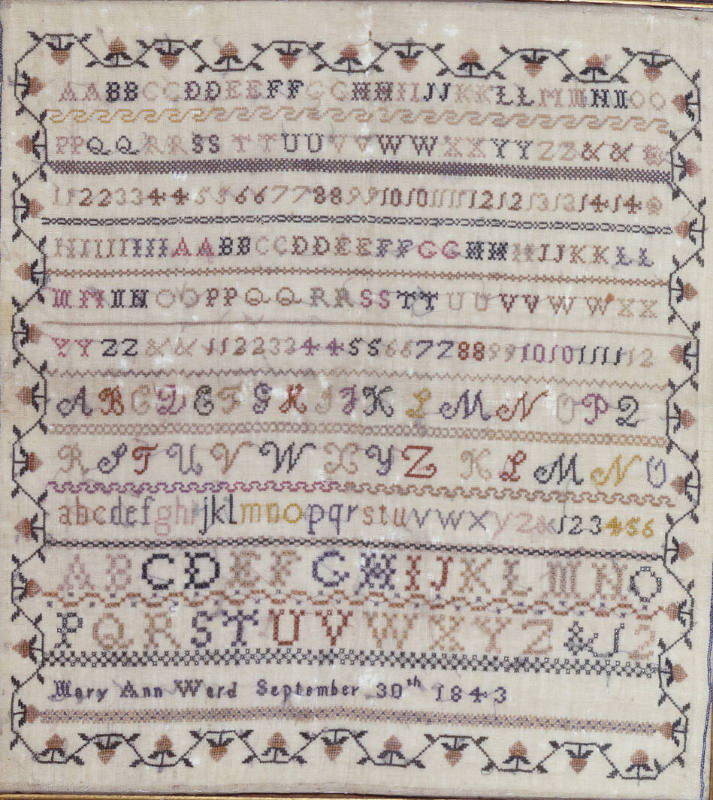 AABBCCDDEEFFGGHHIIJJKKLLMMNNOO
PPQQRRSSTTUUVVWWXXYYZZ&&
11223344556677889910101111121213131414
HIIIIHHIAABBCCDDEEFFGGHHHIJJKKLL
MMNNOOPPQQRRSSTTUUVVWWXX
YYZZ&&112233445566778899101011111212
ABCDEFGHIJKLMNOPQ
RSTUVWXYZ KLMNO
abcdefghijklmnopqrstuvwxyz&123456
ABCDEFGHIJKLMNO
PQRSTUVWXYZ&12
Mary Ann Ward September 30th 1843